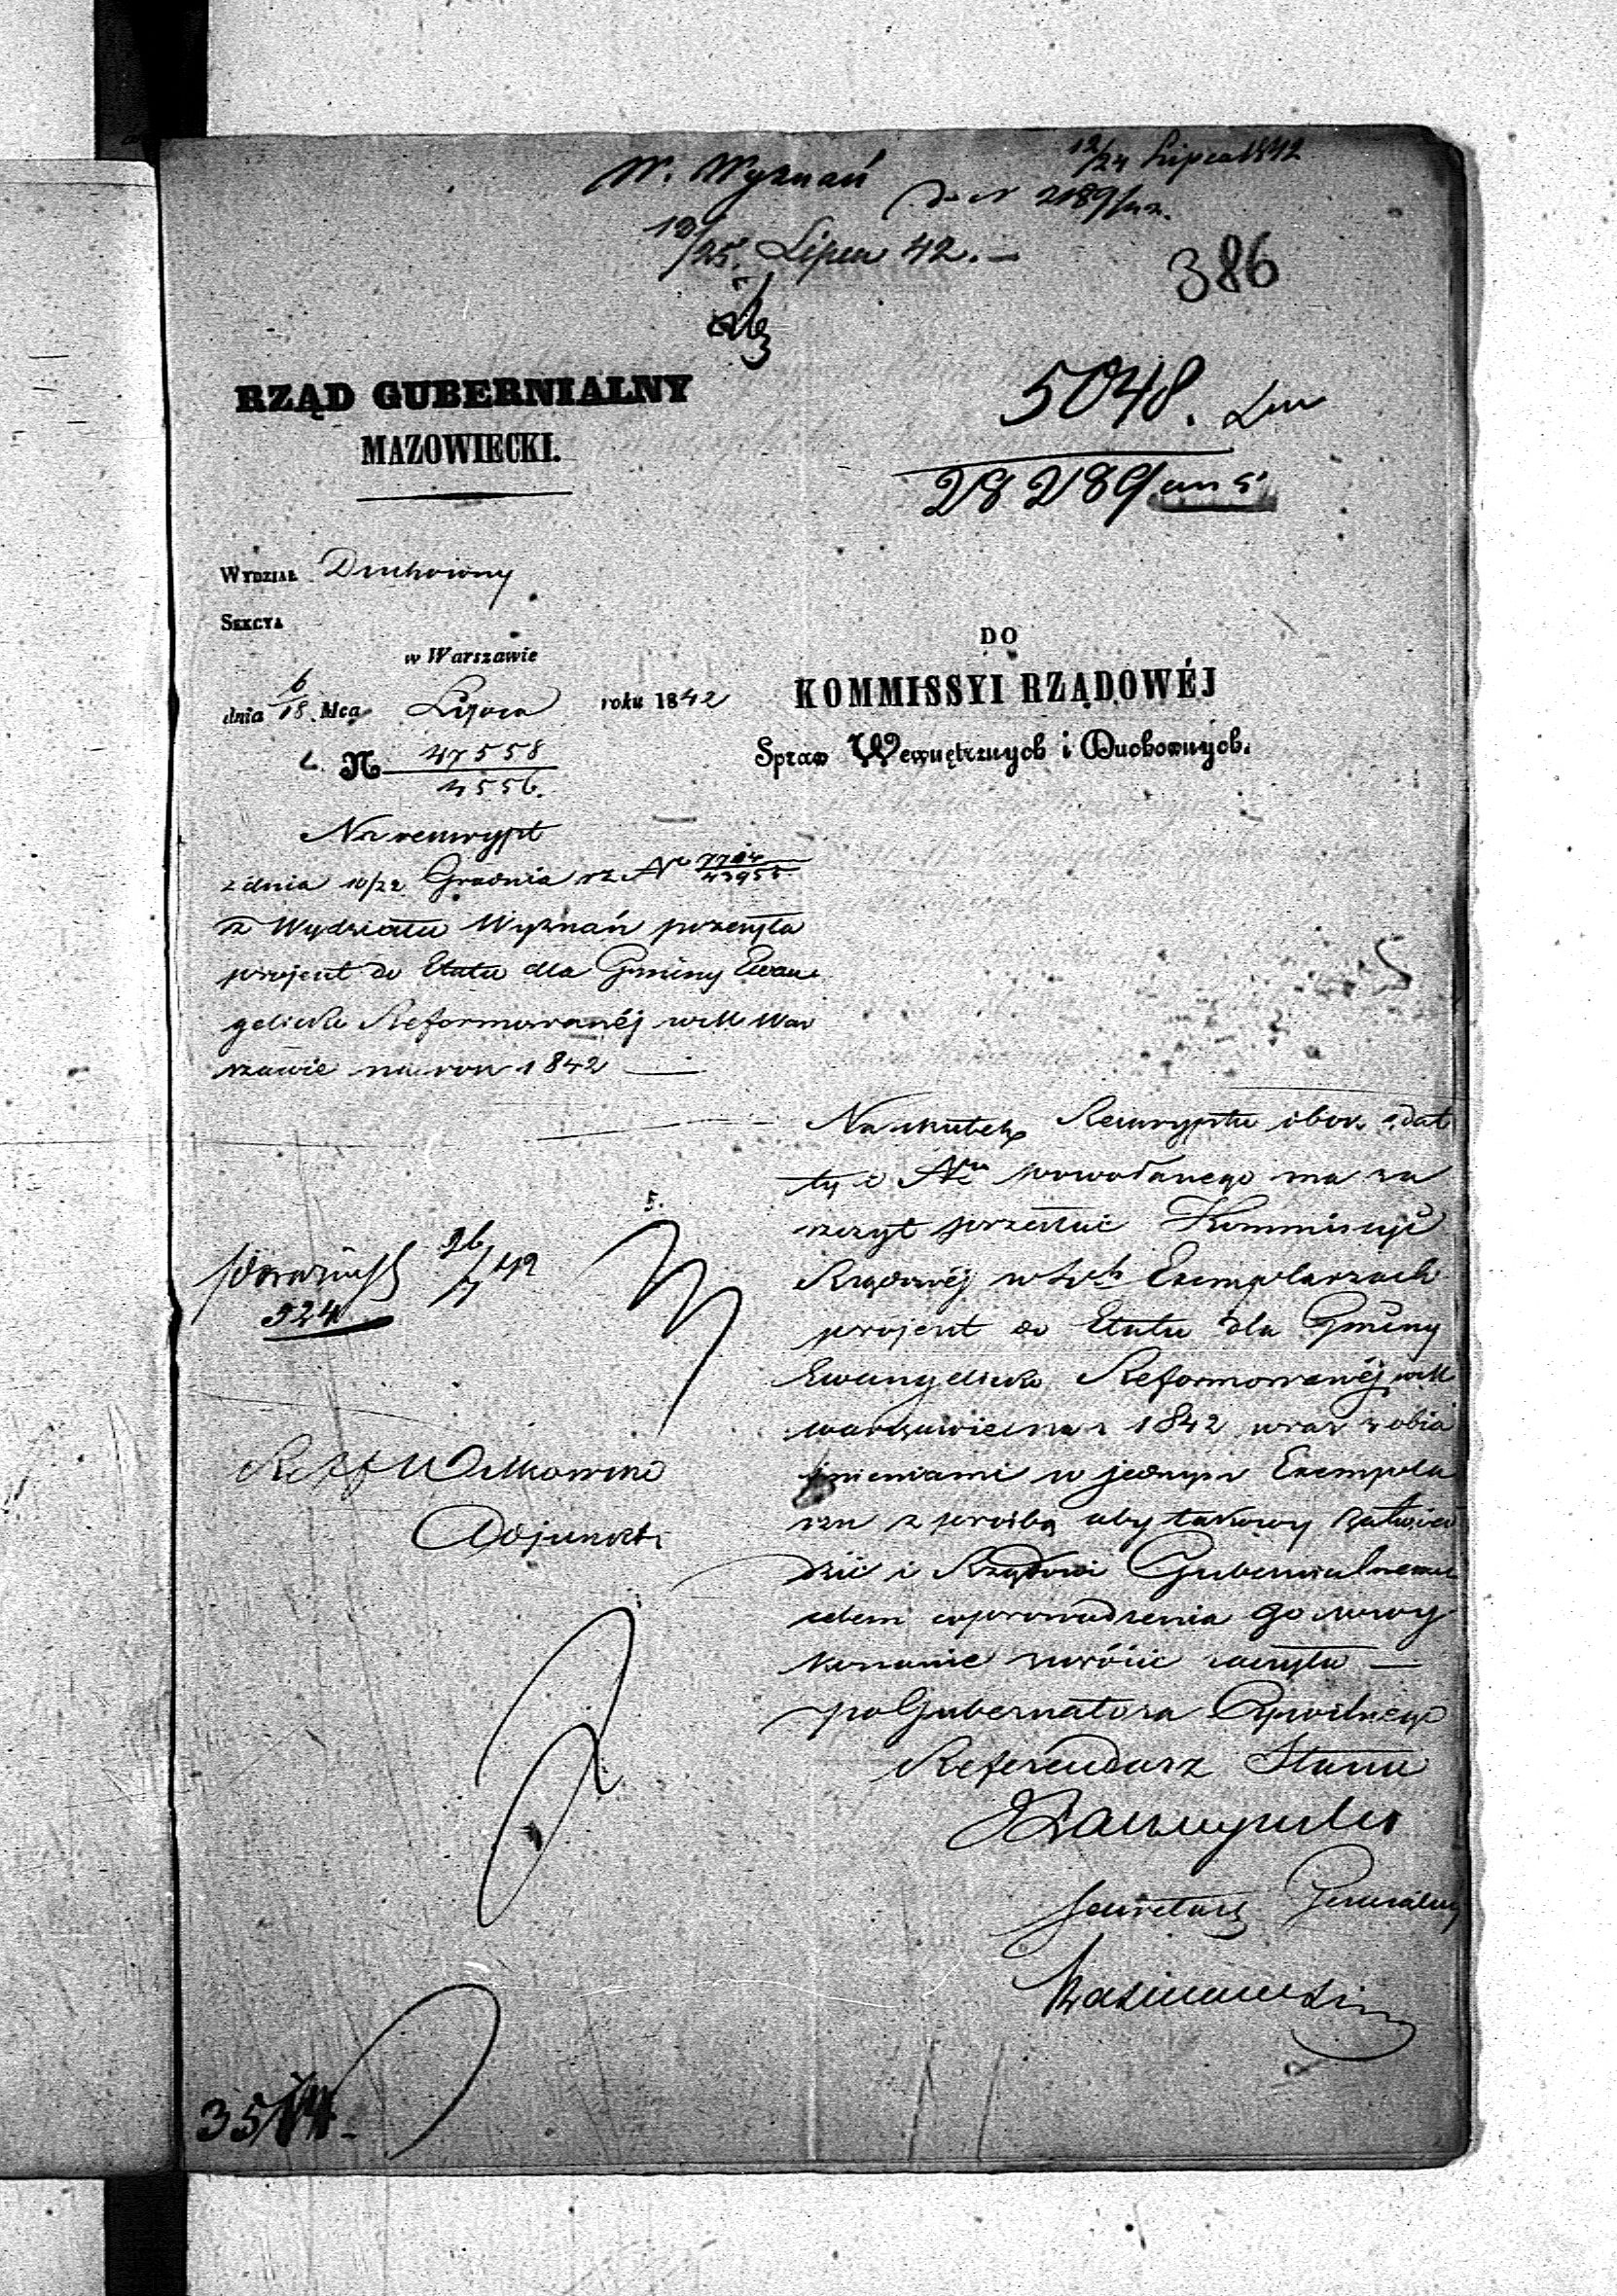 W. Wyznań
12/24 Lipca 1842
13/25. Lipca 42. —
386
RZĄD GUBERNIALNY
MAZOWIECKI.
5048.
28289
WYDZIAŁ Duchowny
SEKCYA
w Warszawie
dnia 6/18 Mca Lipca roku 1842
N 47558
4556.
DO
KOMMISSYI RZĄDOWÉJ
Spraw Wewnętrznych i Duchownych.
Na reskrypt
z dnia 10/22 Grudnia rz No
z Wydziału Wyznań przesyła
projekt do Etatu dla Gminy Ewan
gelicko Reformowanéj w M War
szawie na rok 1842 —
Na skutek Reskryptu obok z dat
ty i Nru powołanego ma za
szczyt przesłać Kommissyi
Rządowéj w Exemplarzach
projekt do Etatu dla Gminy
Ewangelicko Reformowanéj w M
Warszawie na r 1842 wraz z obja
śnieniami w jednym Exempla
rzu z prośbą aby takowy zatwier
dzić i Rządowi Gubernialnemu
celem wprowadzenia go w wy
konanie zwrócić raczyła —
Gubernatora Cywilnego
Referendarz Stanu
Sekretarz Generalny
26/7 42
524
Adjunkt